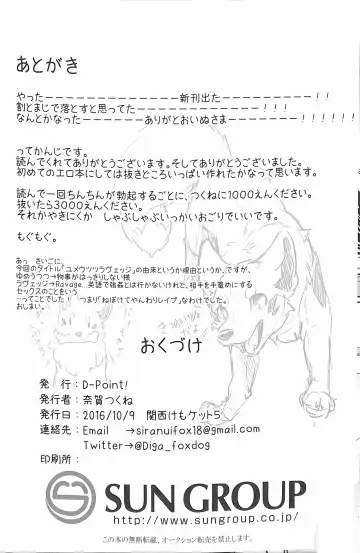 あとがき
やったーーーーーーーーーーーーー新刊出たーーーーーーーーー!
割とまじで落とすと思ってたーーーーーーーーーーー!!!
なんとかなったーーーーーーありがとおいぬさまーーーーーー!!!!!!
ってかんじです。
読んでくれてありがとうございます。そしてありがとうございました。
初めてのエロ本にしては抜きどころいっぱい作れたかなって思います。
読んで一回ちんちんが勃起するごとに、つくねに1000えんください。
抜いたら3000えんください。
それかやきにくか しゃぶしゃぶいっかいおごりでいいです。
もぐもぐ。
あっ さいごに、
今回のタイトル「ユメウツツラヴェッジ」の由来というか理由というか、ですが、
ゆめうつつ→物事がはっきりしない様
ラヴェッジ→Ravage…英語で強姦とは行かないけれど、相手を手篭めにする
セックスのことをいう
…ってことでした! つまり「ねぼけてやんわりレイプ」なわけでした。
おしまい。
おくづけ
発 行:D-Point!
発行者:奈賀つくね
発行日:2016/10/9 関西けもケット5
連絡先:Email →siranuifox18@gmail.com
Twitter→@Diga_foxdog
印刷所:
SUN GROUP
http://www.sungroup.co.jp/
この本の無断転載、オークション転売を禁止します。